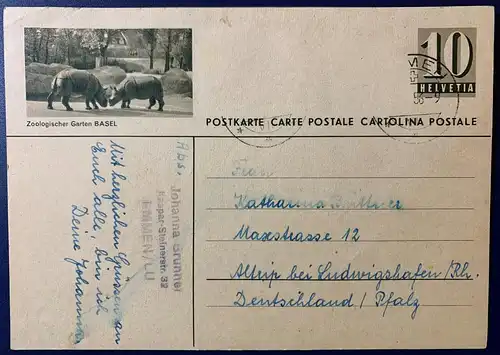 Zoologischer Garten BASEL
10
HELVETIA
POSTKARTE CARTE POSTALE CARTOLINA POSTALE
56-9
Abs.
Johanna Brunner
Kaspar-Steinerstr. 32
EMMEN/LU
Mit herzlichen Grüssen an
Euch alle, bin ich
Deine Johanna
Frau
Katharina Büttner
Maxstrasse 12
Altrip bei Ludwigshafen/Rh.
Deutschland / Pfalz